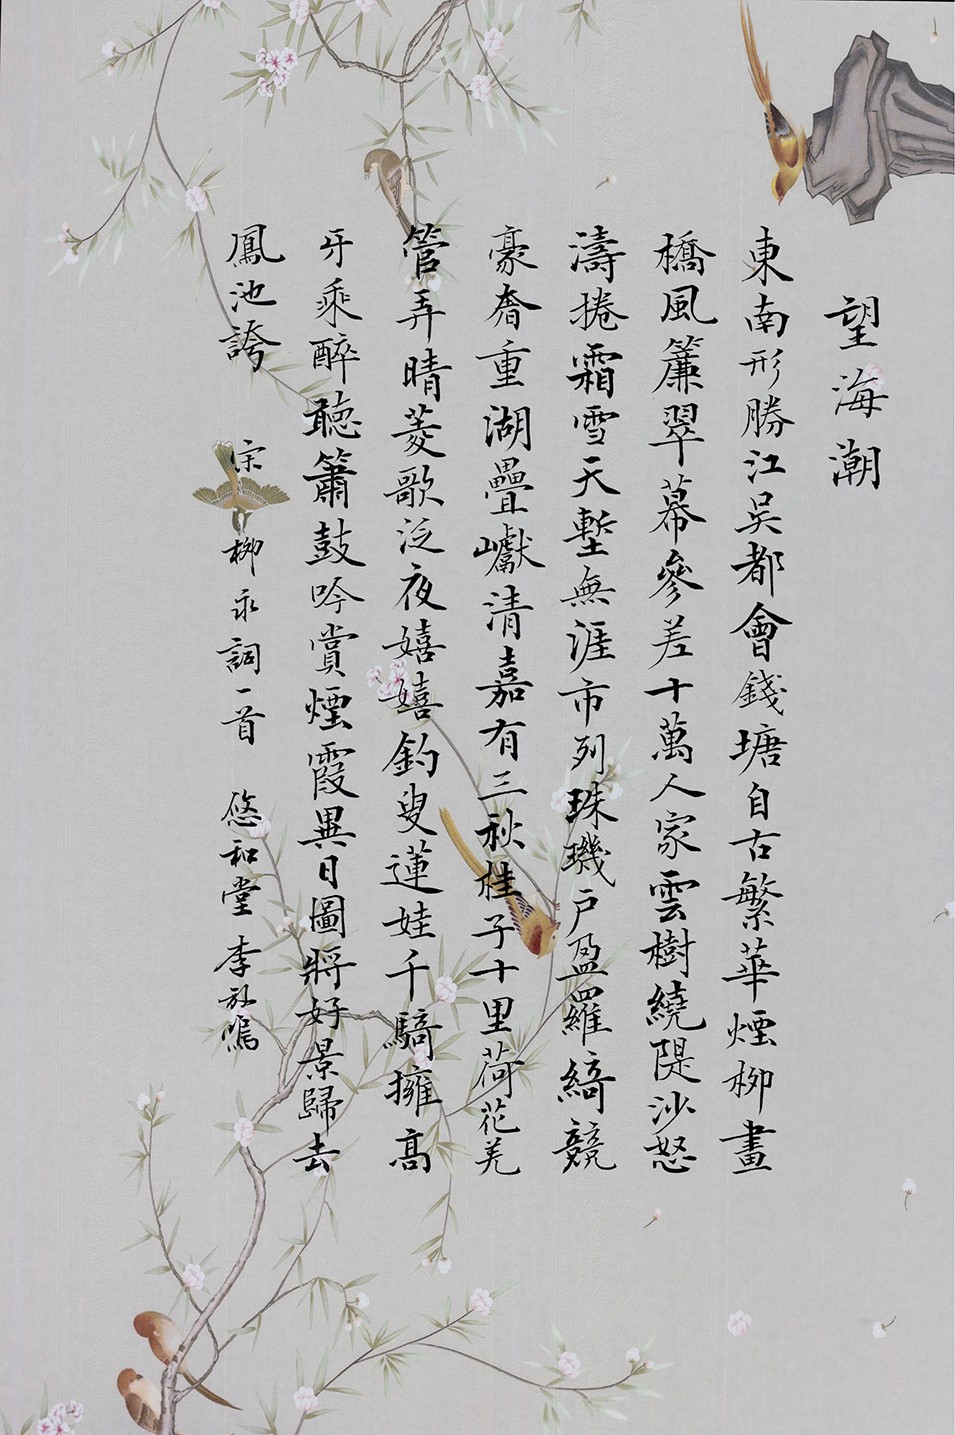 望海潮
東南形勝江吴都會錢塘自古繁華煙柳畫
橋風簾翠幕參差十萬人家雲樹繞隄沙怒
濤捲霜雪天塹無涯市列珠璣戶盈羅綺競
豪奢重湖疊巘清嘉有三秋桂子十里荷花羌
管弄晴菱歌泛夜嬉嬉釣叟蓮娃千騎擁高
牙乘醉聽簫鼓吟賞煙霞異日圖將好景歸去
鳳池誇 宋柳永詞一首 悠和堂李